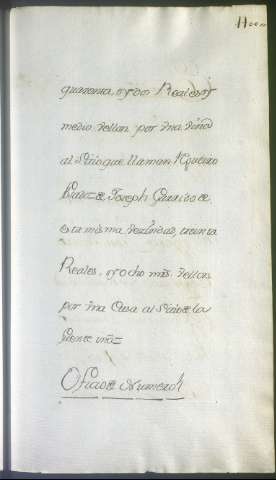 quarenta, y dos Reales, y
medio Vellon por vna viña
al Sitio que llaman
de Joseph
esta misma Vezindad, treinta
Reales, y ocho mrs. Vellon,
por vna Casa al Sitio de la
fuente
Ofizio de